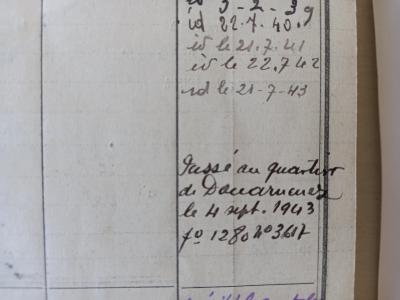 id 3-2-39
id 22.7.40.
id le 21.7.41
id le 22.7.42
id le 21-7-43
Passé au quartier
de Douarnenez
le 4 sept. 1943
fo 1280 no 3617